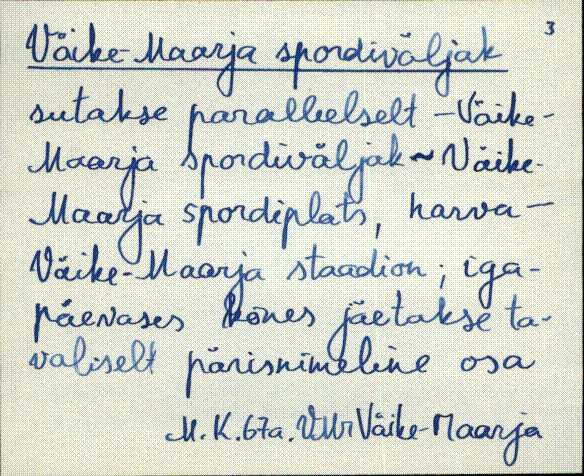 3
Väike-Maarja spordiväljak
sutakse paralleelselt – Väike-
Maarja spordiväljak ~ Väike-
Maarja spordiplats, harva –
Väike-Maarja staadion; iga-
päevases kõnes jäetakse ta-
valiselt pärisnimeline osa
M. K. 67a. VMr Väike-Maarja